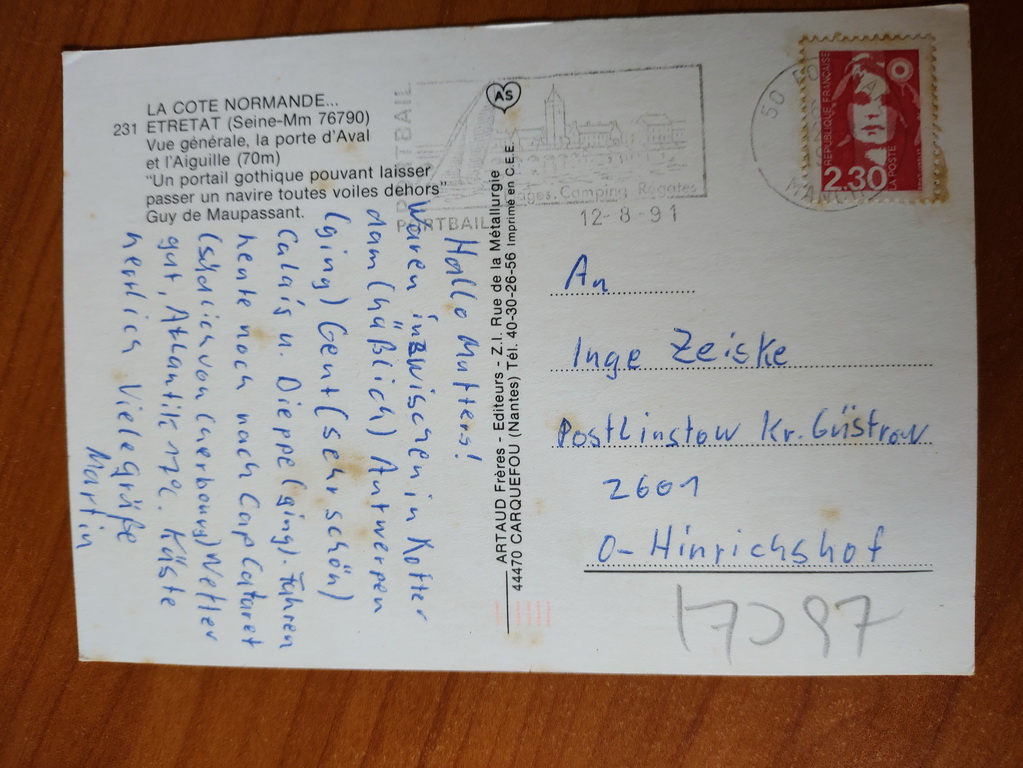 LA COTE NORMANDE...
231 ETRETAT (Seine-Mm 76790)
Vue générale, la porte d'Aval
et l'Aiguille (70m)
"Un portail gothique pouvant laisser
passer un navire toutes voiles dehors"
Guy de Maupassant.
Hallo Mutters!
Waren inzwischen in Rotter
dam (häßlich) Antwerpen
(ging) Gent (sehr schön)
Calais u. Dieppe (ging). Fahren
heute noch nach Cap Cateret
(südlich von Cherbourg) Wetter
gut, Atlantik 17°C. Küste
herrlich Viele Grüße
Martin
AS
ARTAUD Frères - Editeurs - Z.I. Rue de la Métallurgie
44470 CARQUEFOU (Nantes) Tél. 40-30-26-56 Imprimé en C.E.E.
PORTBAIL
PORTBAIL
Plages. Camping Régates
12-8-91
50
REPUBLIQUE FRANÇAISE
LA POSTE
2.30
An
Inge Zeiske
Post Linstow Kr. Güstrow
2601
O-Hinrichshof